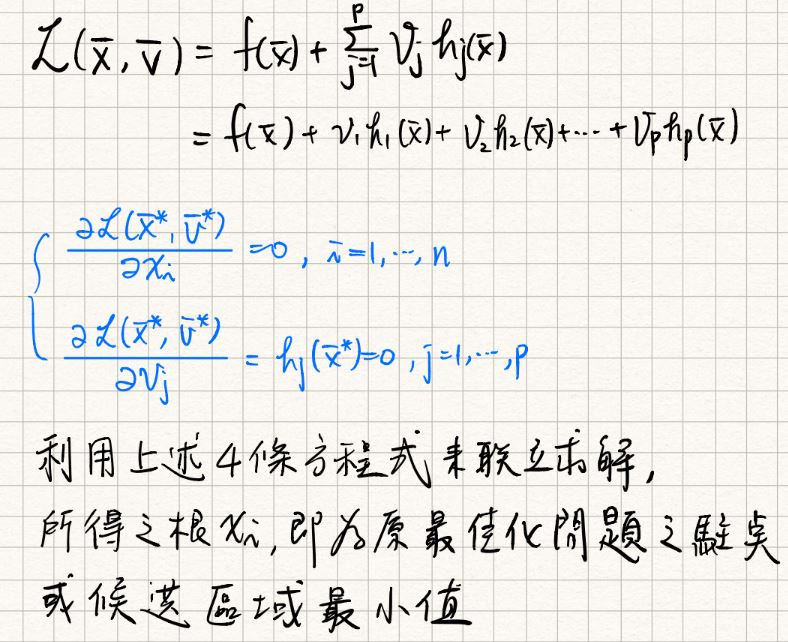 L(x̄, v̄) = f(x̄) + Σ_{j=1}^{p} v_j h_j(x̄)
= f(x̄) + v₁h₁(x̄) + v₂h₂(x̄) + ⋯ + v_p h_p(x̄)
∂L(x̄*, v̄*)/∂x_i = 0, i = 1, ⋯, n
∂L(x̄*, v̄*)/∂v_j = h_j(x̄*) = 0, j = 1, ⋯, p
利用上述4條方程式來联立求解,
所得之根x_i, 即為原最佳化問題之駐點
或候选區域最小值